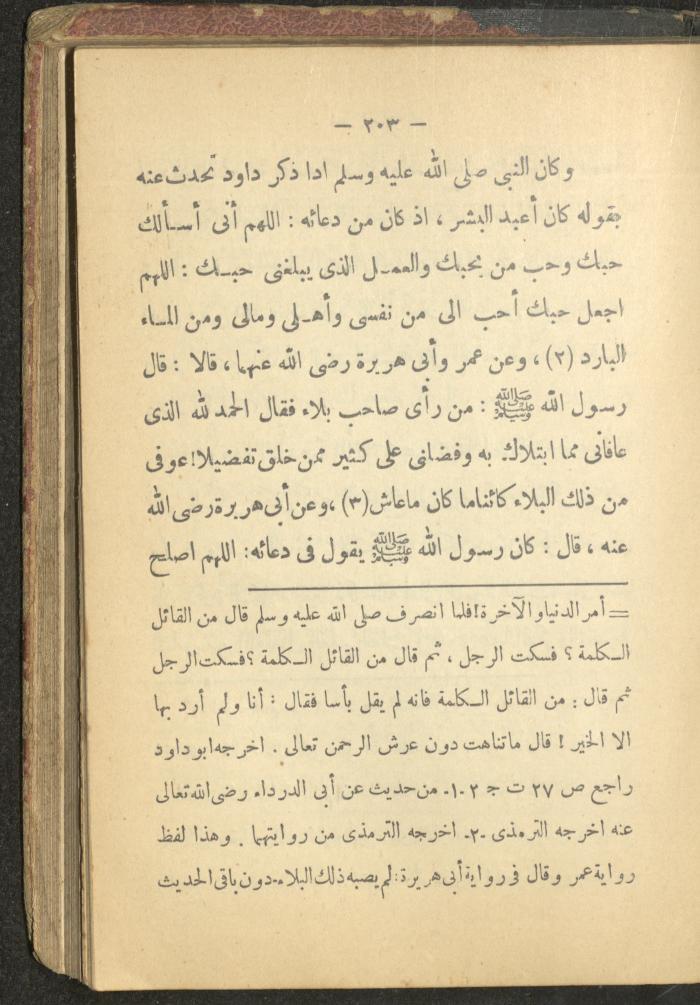 — ٢٠٣ —
وكان النبى صلى الله عليه وسلم اذا ذكر داود تحدث عنه
بقوله كان أعبد البشر ، اذ كان من دعائه : اللهم أنى أسألك
حبك وحب من يحبك والعمل الذى يبلغنى حبك : اللهم
اجعل حبك أحب الى من نفسى وأهلى ومالى ومن الماء
البارد (٢) ، وعن عمر وأبى هريرة رضى الله عنهما ، قالا : قال
رسول الله ﷺ : من رأى صاحب بلاء فقال الحمد لله الذى
عافانى مما ابتلاك به وفضلنى على كثير ممن خلق تفضيلا! عوفى
من ذلك البلاء كائنا ما كان ما عاش (٣) ، وعن أبى هريرة رضى الله
عنه ، قال : كان رسول الله ﷺ يقول فى دعائه : اللهم اصلح
= أمر الدنيا والآخرة! فلما انصرف صلى الله عليه وسلم قال من القائل
الكلمة ؟ فسكت الرجل ، ثم قال من القائل الكلمة ؟ فسكت الرجل
ثم قال : من القائل الكلمة فانه لم يقل بأسا فقال : أنا ولم أرد بها
الا الخير ! قال ما تناهت دون عرش الرحمن تعالى . اخرجه ابو داود
راجع ص ٢٧ ت ج ٢ -١- من حديث عن أبى الدرداء رضى الله تعالى
عنه اخرجه الترمذى -٢- اخرجه الترمذى من روايتهما . وهذا لفظ
رواية عمر وقال فى رواية أبى هريرة : لم يصبه ذلك البلاء - دون باقى الحديث